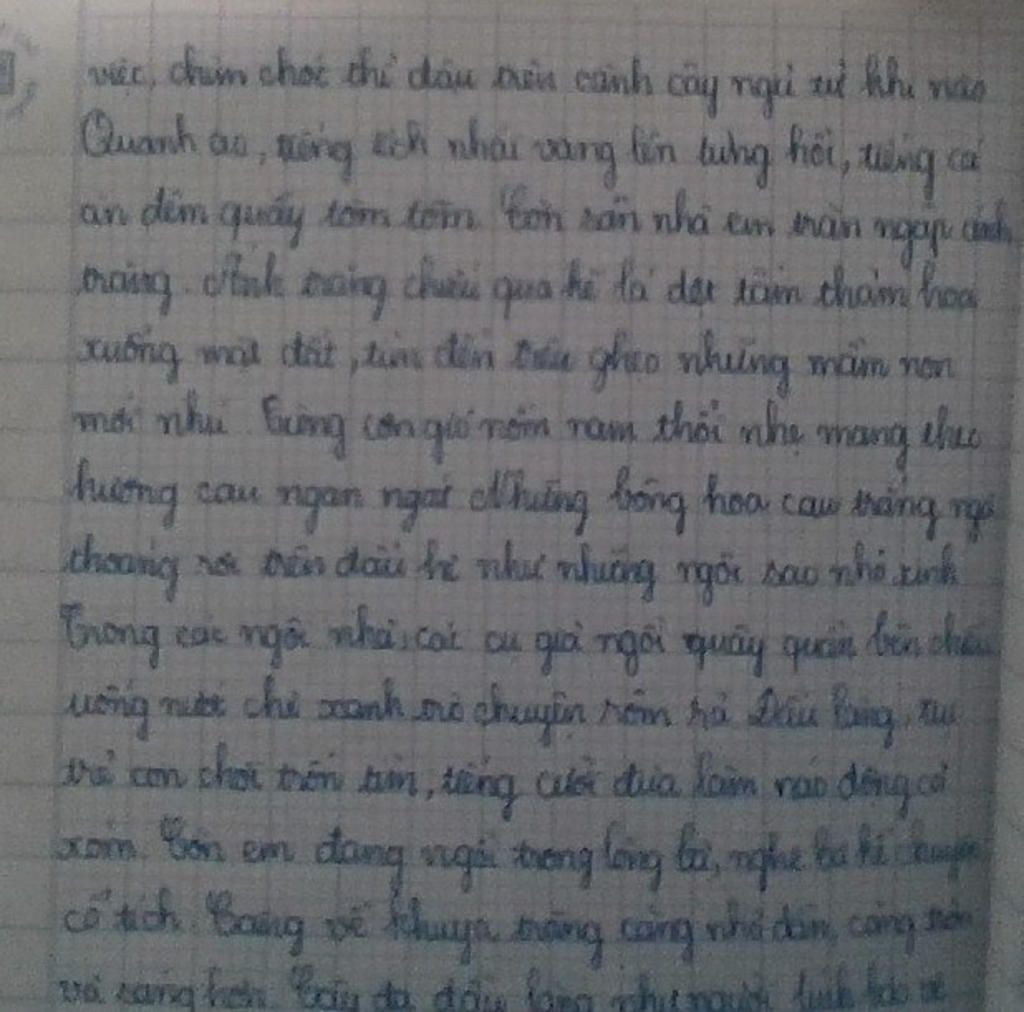 việc, chim chóc thì đậu trên cành cây ngủ từ khi nào
Quanh ao, tiếng ếch nhái vang lên từng hồi, tiếng cá
ăn đêm quẫy tòm tõm. Còn sân nhà em tràn ngập ánh
trăng. Ánh trăng chiếu qua kẽ lá dệt tấm thảm hoa
xuống mặt đất, tìm đến trêu ghẹo những mầm non
mới nhú. Từng cơn gió nồm nam thổi nhẹ mang theo
hương cau ngan ngát. Những bông hoa cau trắng ngà
thoảng rơi trên đầu hè như những ngôi sao nhỏ xinh
Trong các ngôi nhà, các cụ già ngồi quây quần bên nhau
uống nước chè xanh trò chuyện rôm rả. Đầu làng,
trẻ con chơi trốn tìm, tiếng cười đùa làm náo động cả
xóm. Còn em đang ngồi trong lòng bà, nghe bà kể chuyện
cổ tích. Càng về khuya, trăng càng nhỏ dần, càng tròn
và sáng hơn. Cây đa đầu làng như người lính